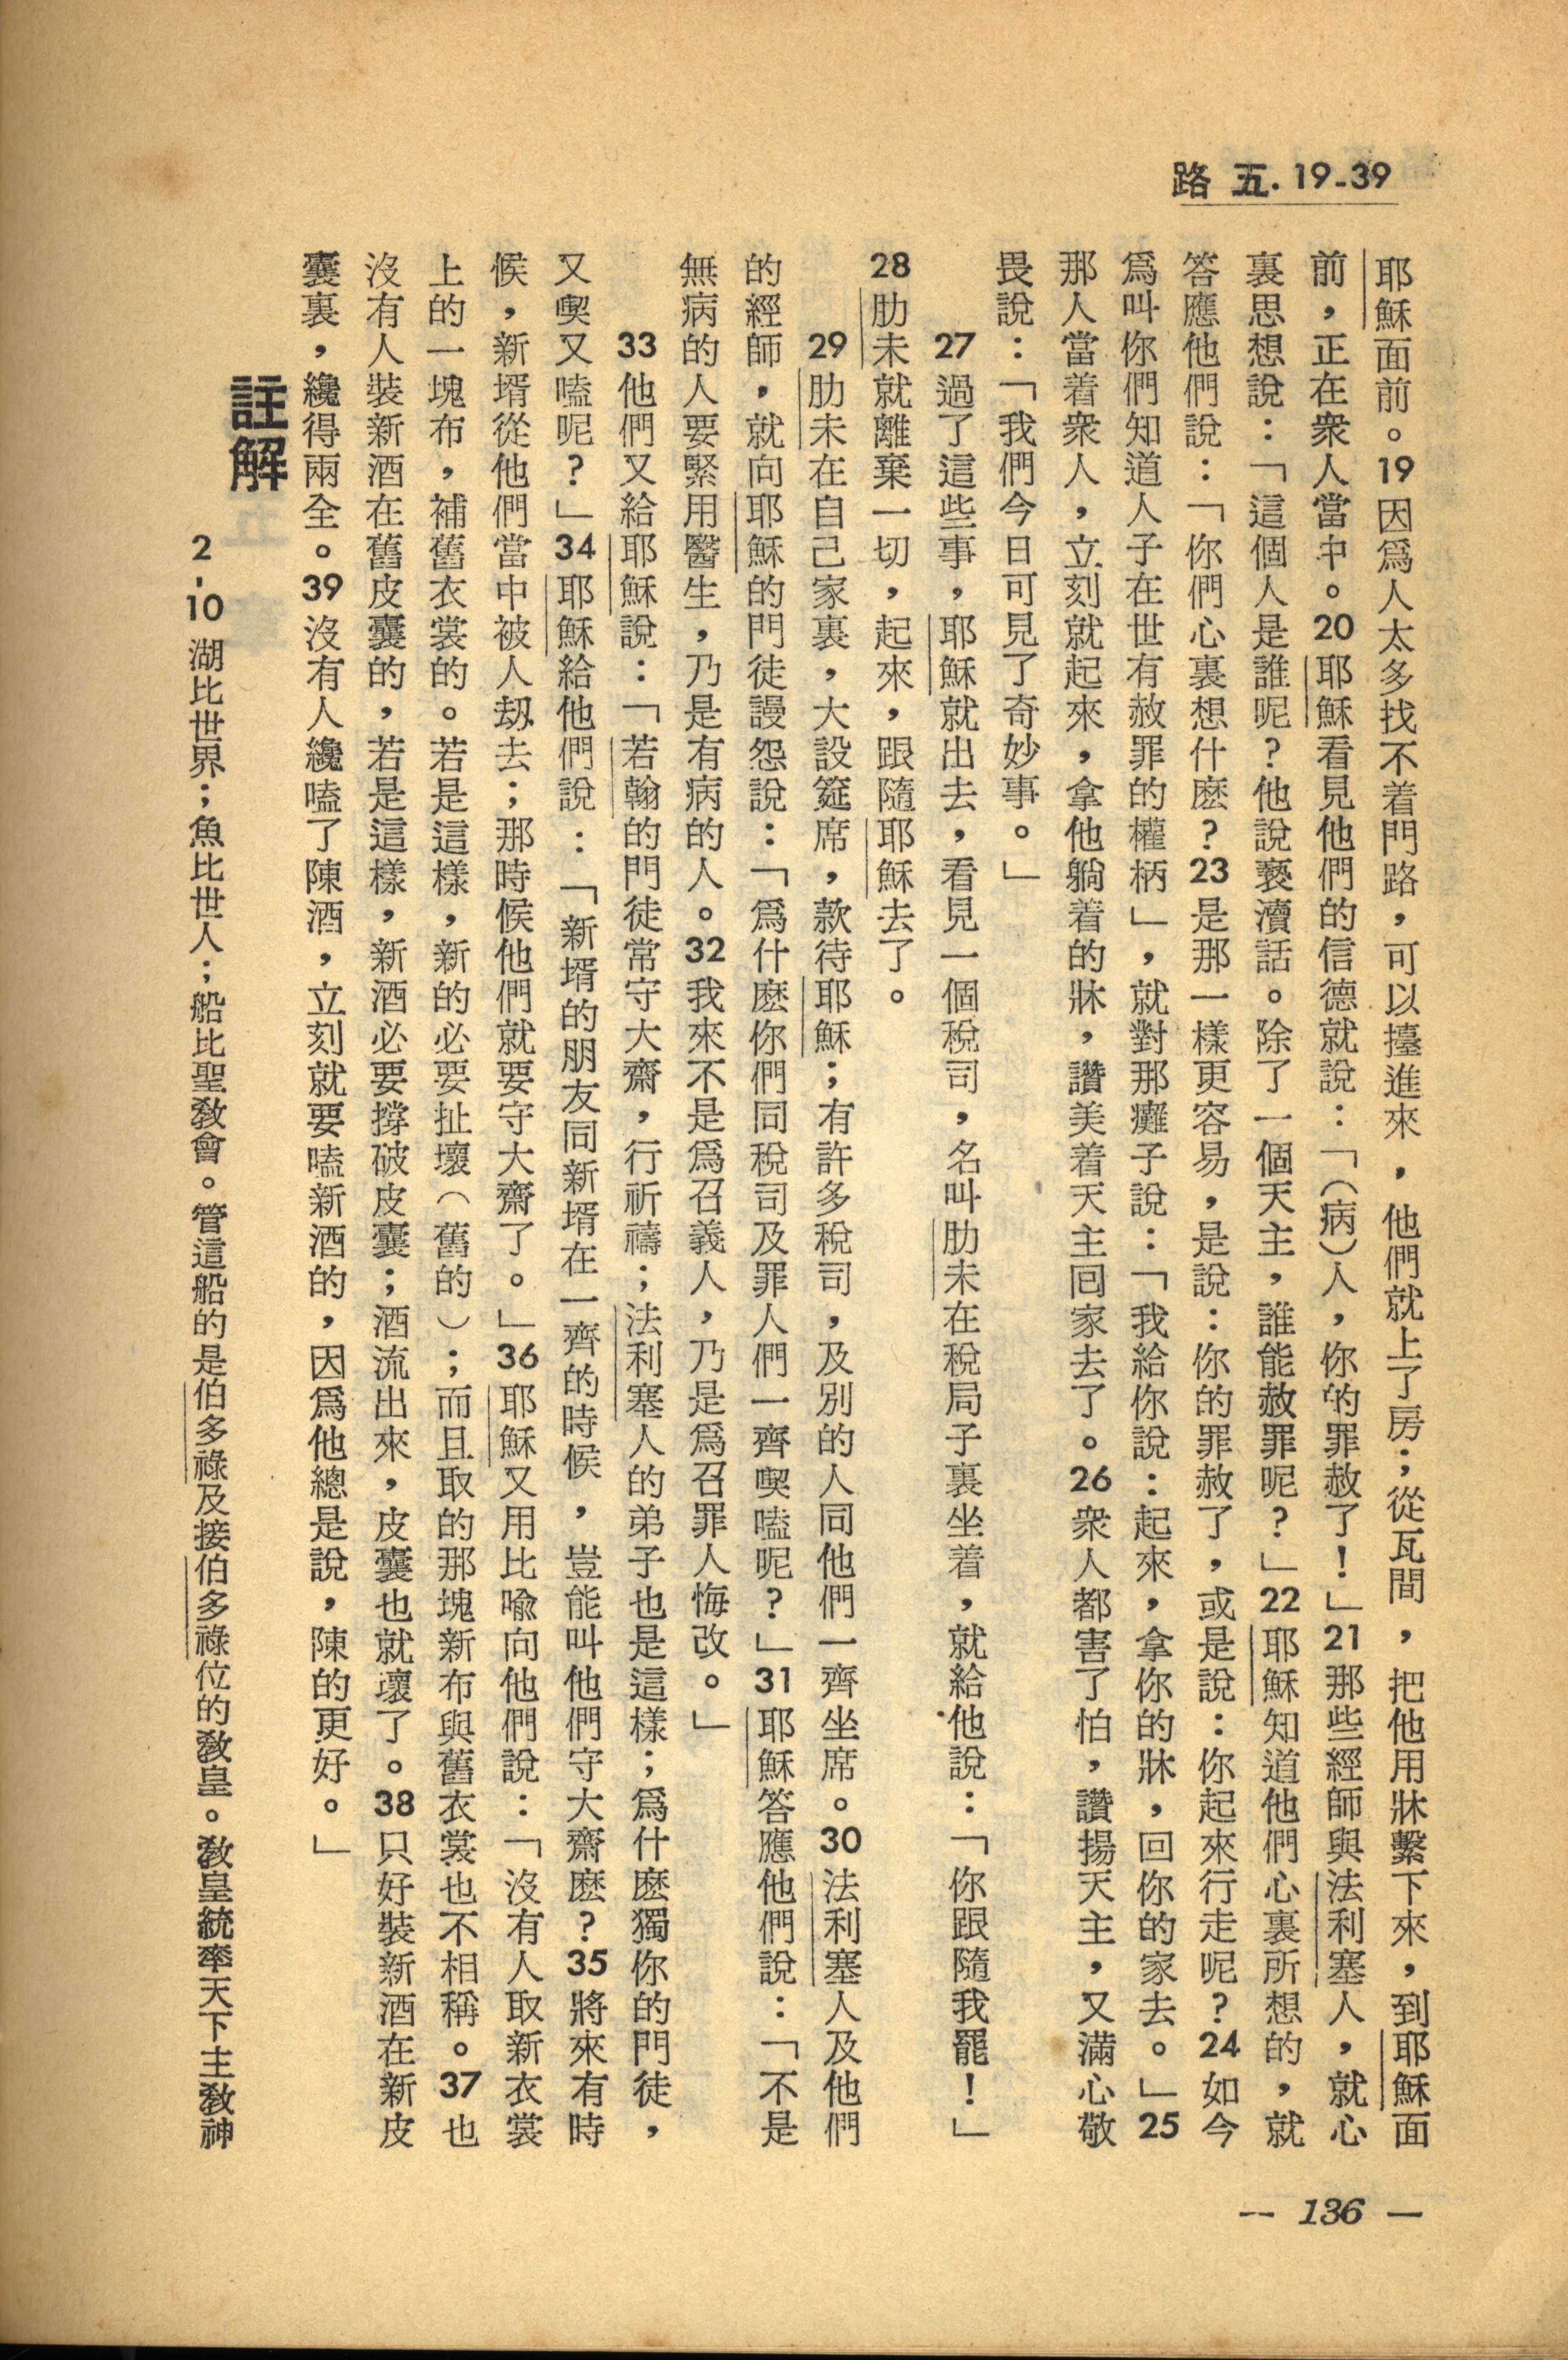 路 五. 19-39
耶穌面前。19因爲人太多找不着門路，可以擡進來，他們就上了房；從瓦間，把他用牀繫下來，到耶穌面
前，正在衆人當中。20耶穌看見他們的信德就說：「（病）人，你的罪赦了！」21那些經師與法利塞人，就心
裏思想說：「這個人是誰呢？他說褻瀆話。除了一個天主，誰能赦罪呢？」22耶穌知道他們心裏所想的，就
答應他們說：「你們心裏想什麽？23是那一樣更容易，是說：你的罪赦了，或是說：你起來行走呢？24如今
爲叫你們知道人子在世有赦罪的權柄」，就對那癱子說：「我給你說：起來，拿你的牀，回你的家去。」25
那人當着衆人，立刻就起來，拿他躺着的牀，讚美着天主囘家去了。26衆人都害了怕，讚揚天主，又滿心敬
畏說：「我們今日可見了奇妙事。」
27過了這些事，耶穌就出去，看見一個稅司，名叫肋未在稅局子裏坐着，就給他說：「你跟隨我罷！」
28肋未就離棄一切，起來，跟隨耶穌去了。
29肋未在自己家裏，大設筵席，款待耶穌；有許多稅司，及別的人同他們一齊坐席。30法利塞人及他們
的經師，就向耶穌的門徒謾怨說：「爲什麽你們同稅司及罪人們一齊喫嗑呢？」31耶穌答應他們說：「不是
無病的人要緊用醫生，乃是有病的人。32我來不是爲召義人，乃是爲召罪人悔改。」
33他們又給耶穌說：「若翰的門徒常守大齋，行祈禱；法利塞人的弟子也是這樣；爲什麽獨你的門徒，
又喫又嗑呢？」34耶穌給他們說：「新壻的朋友同新壻在一齊的時候，豈能叫他們守大齋麽？35將來有時
候，新壻從他們當中被人刼去；那時候他們就要守大齋了。」36耶穌又用比喩向他們說：「沒有人取新衣裳
上的一塊布，補舊衣裳的。若是這樣，新的必要扯壞（舊的）；而且取的那塊新布與舊衣裳也不相稱。37也
沒有人裝新酒在舊皮囊的，若是這樣，新酒必要撐破皮囊；酒流出來，皮囊也就壞了。38只好裝新酒在新皮
囊裏，纔得兩全。39沒有人纔嗑了陳酒，立刻就要嗑新酒的，因爲他總是說，陳的更好。」
註解
2-10湖比世界；魚比世人；船比聖敎會。管這船的是伯多祿及接伯多祿位的敎皇。敎皇統率天下主敎神
— 136 —